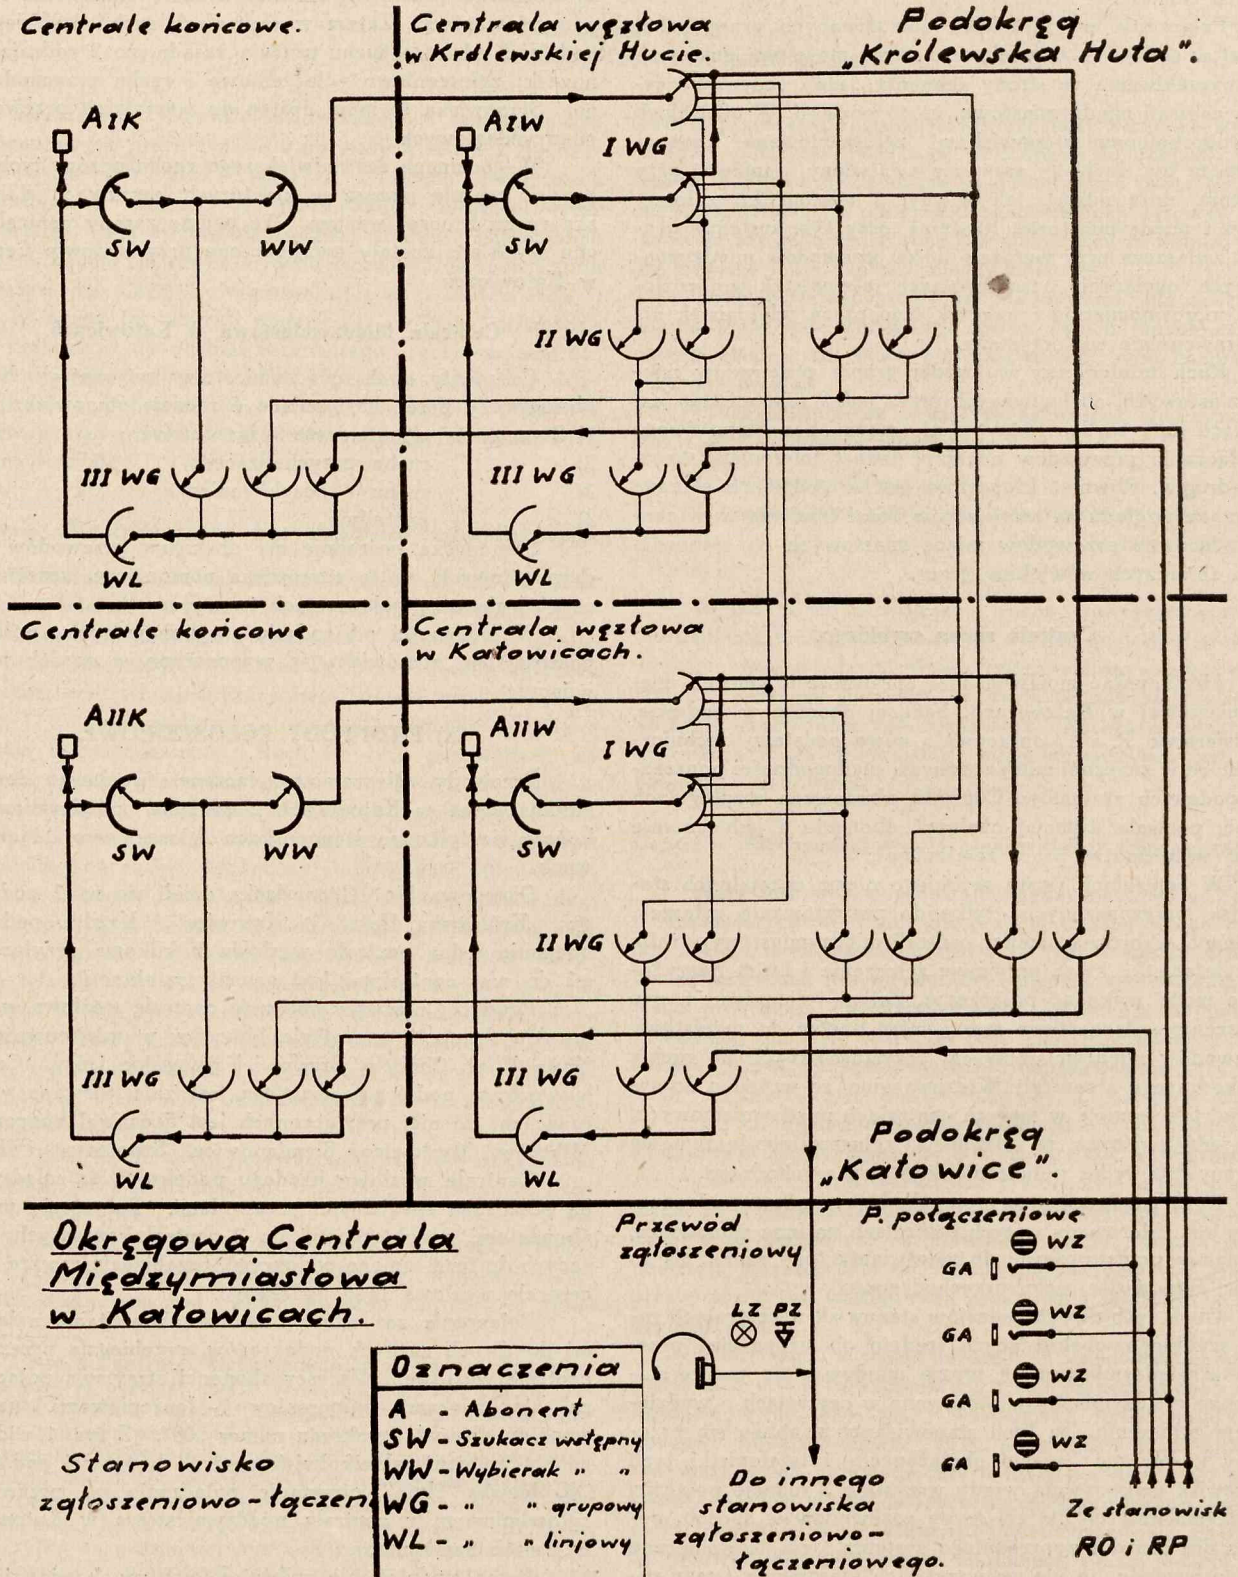 Centrale końcowe.
Centrala węzłowa
w Królewskiej Hucie.
Podokręg
„Królewska Huta”.
AIK
AIW
I WG
SW
WW
SW
II WG
III WG
III WG
WL
WL
Centrale końcowe
Centrala węzłowa
w Katowicach.
AIIK
AIIW
I WG
SW
WW
SW
II WG
III WG
III WG
WL
WL
Podokręg
„Katowice”.
Okręgowa Centrala
Międzymiastowa
w Katowicach.
Przewód
zgłoszeniowy
P. połączeniowe
WZ
GA
LZ PZ
WZ
GA
WZ
GA
WZ
GA
Oznaczenia
A - Abonent
SW - Szukacz wstępny
WW - Wybierak „ „
WG - „ „ grupowy
WL - „ „ linjowy
Stanowisko
zgłoszeniowo-łączeni
Do innego
stanowiska
zgłoszeniowo-
łączeniowego.
Ze stanowisk
RO i RP